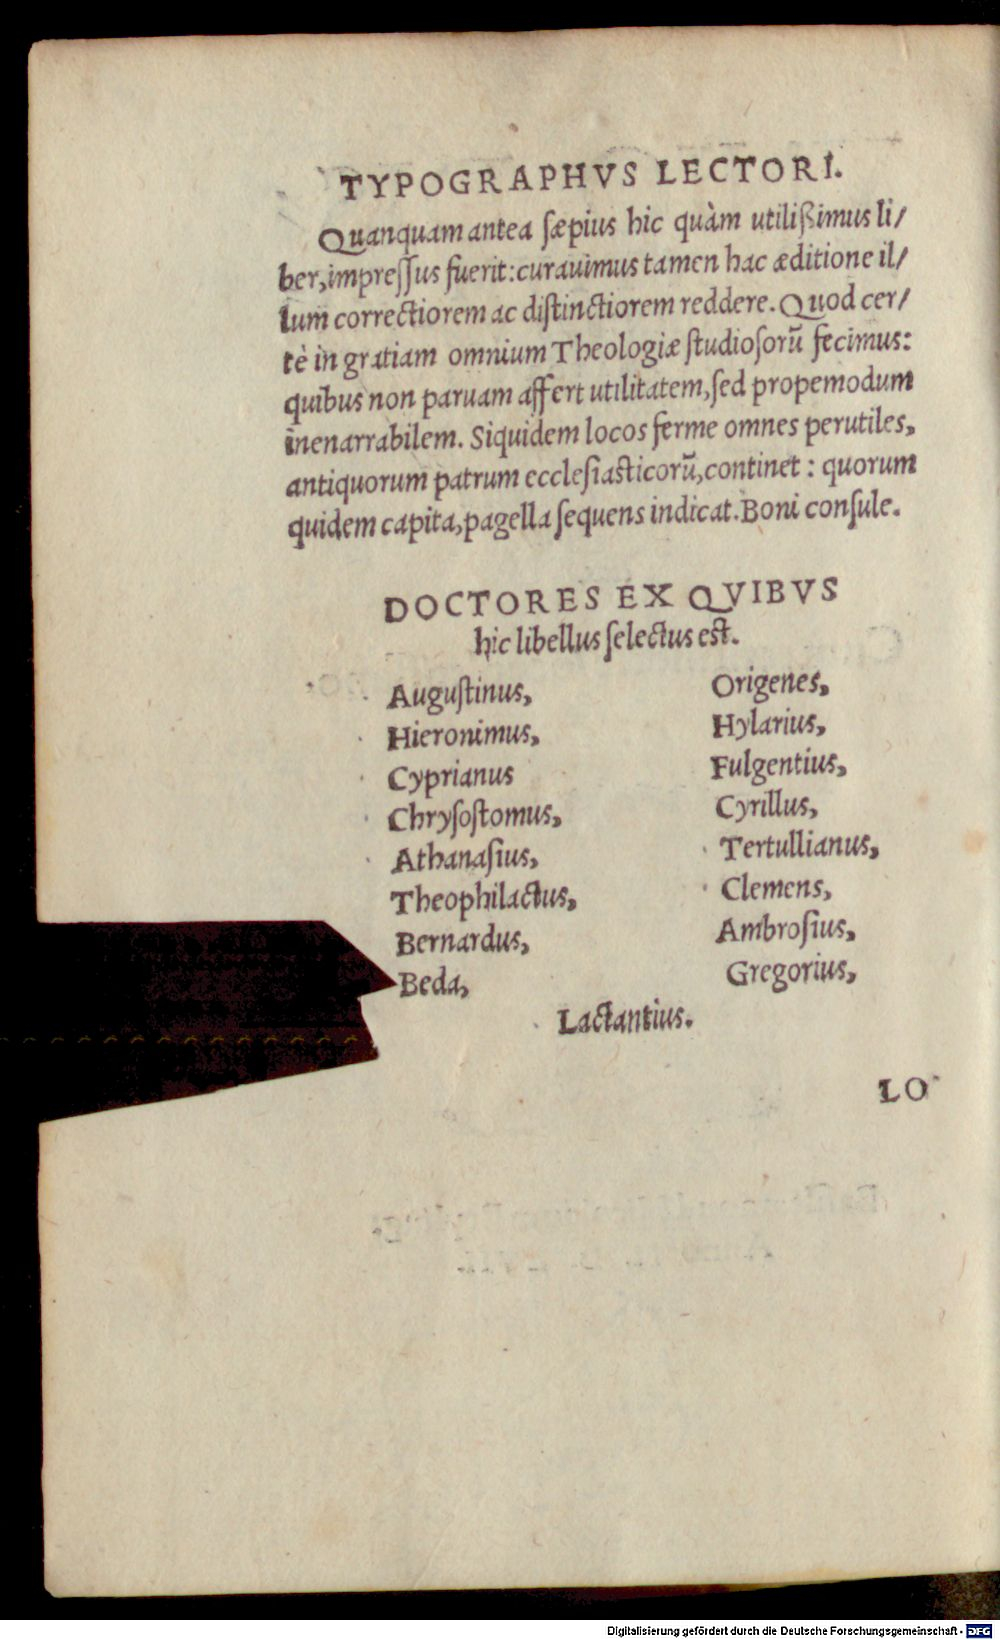 TYPOGRAPHVS LECTORI.
Quanquam antea sæpius hic quàm utilißimus li/
ber, impreſſus fuerit: curauimus tamen hac æditione il/
lum correctiorem ac diſtinctiorem reddere. Quod cer/
tè in gratiam omnium Theologiæ ſtudioſorū fecimus:
quibus non paruam affert utilitatem, ſed propemodum
inenarrabilem. Siquidem locos ferme omnes perutiles,
antiquorum patrum eccleſiaſticorū, continet: quorum
quidem capita, pagella ſequens indicat. Boni conſule.
DOCTORES EX QVIBVS
hic libellus ſelectus eſt.
Auguſtinus,
Hieronimus,
Cyprianus
Chryſoſtomus,
Athanaſius,
Theophilactus,
Bernardus,
Beda,
Origenes,
Hylarius,
Fulgentius,
Cyrillus,
Tertullianus,
Clemens,
Ambroſius,
Gregorius,
Lactantius.
LO
Digitalisierung gefördert durch die Deutsche Forschungsgemeinschaft - DFG